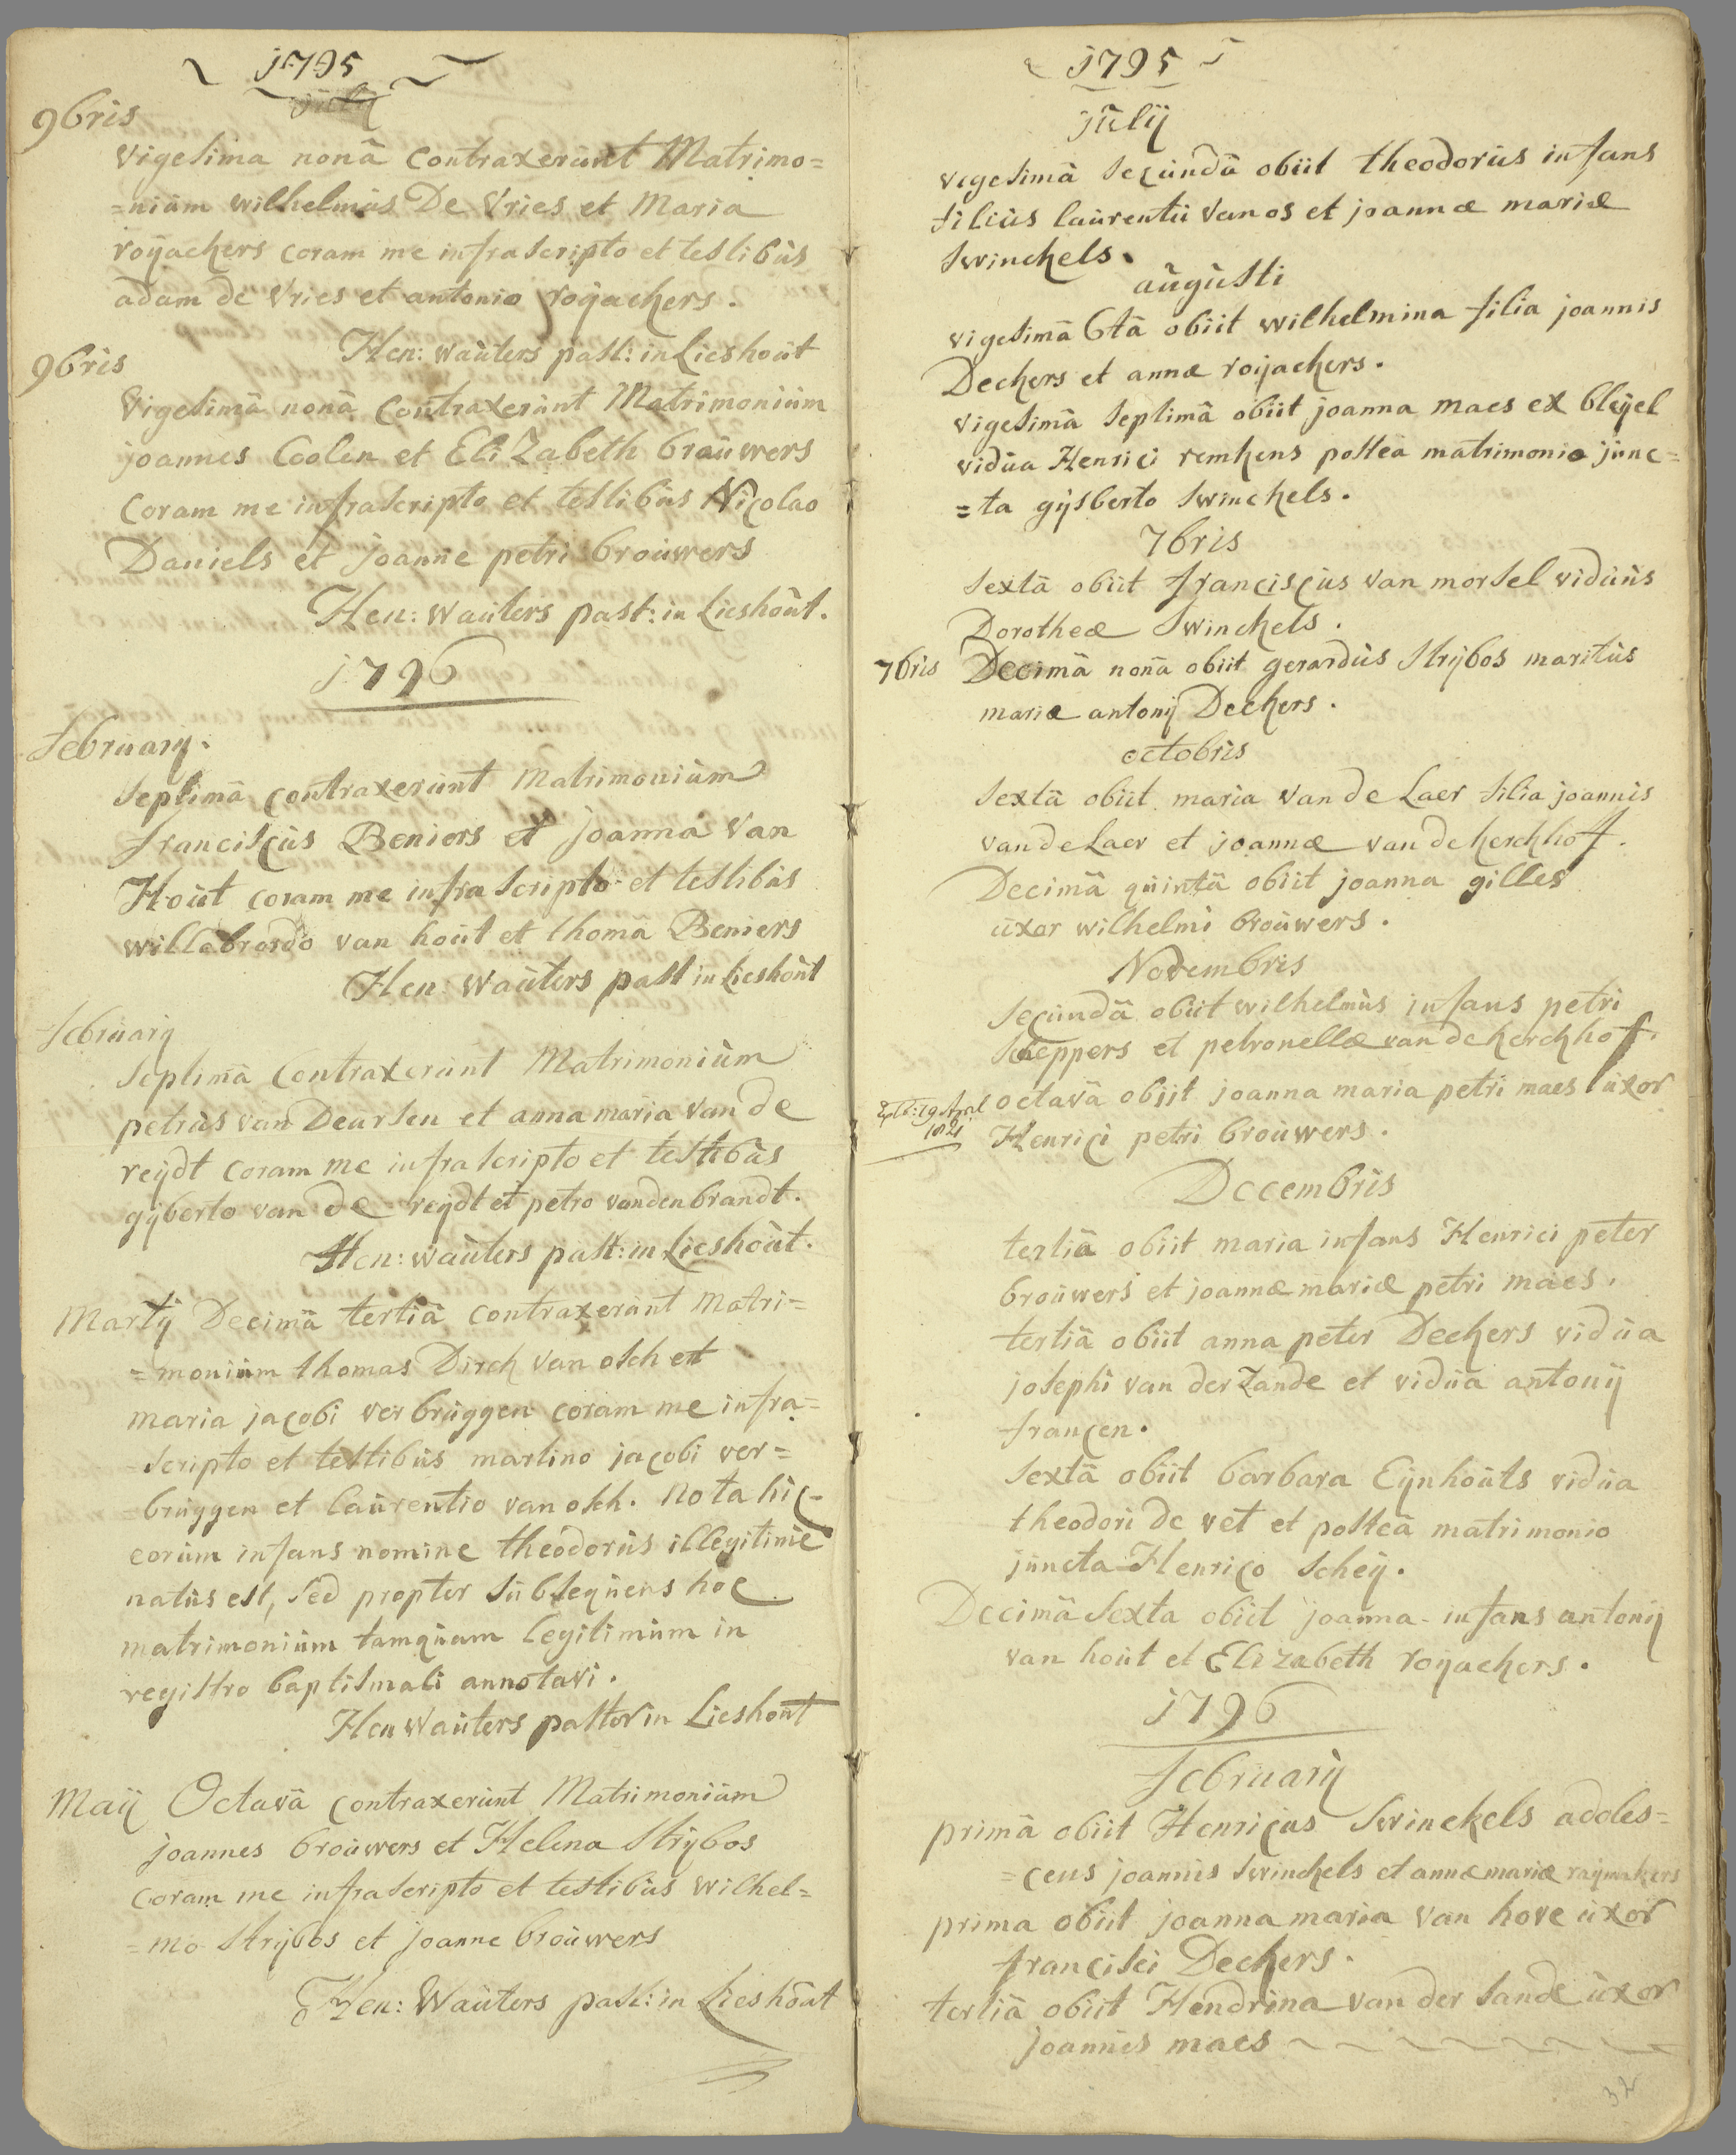 1795
july
9bris
vigesima nonâ contraxerunt Matrimo=
=nium wilhelmus De Vries et Maria
royackers coram me infrascripto et testibus
adam de Vries et antonio royackers.
Hen: wauters past: in Lieshout
9bris
Vigesimâ nonâ contraxerunt Matrimonium
joannes Coolen et EliZabeth brouwers
coram me infrascripto et testibus Nicolao
Daniels et joanne petri brouwers
Hen: wauters past: in Lieshout.
1796
february.
septimâ contraxerunt matrimonium
franciscus Beniers et joanna van
Hout coram me infra scripto et testibus
willebrordo van hout et thomâ Beniers
Hen: wauters past in Lieshout
february
septimâ contraxerunt Matrimonium
petrus van Deursen et anna maria van de
reydt coram me infrascripto et testibus
gijberto van de reydt et petro vanden brandt.
Hen: wauters past: in Lieshout.
Martij Decimâ tertiâ contraxerunt matri=
=monium thomas Dirck van osch et
maria jacobi verbruggen coram me infra=
scripto et testibus martino jacobi ver=
=bruggen et laurentio van osch. nota hic
eorum infans nomine theodorus illegitime
natus est, sed propter subsequens hoc
matrimonium tamquam legitimum in
registro baptismali annotavi.
Hen Wauters pastor in Lieshout
Maij Octavâ contraxerunt Matrimonium
joannes brouwers et Helena strijbos
coram me infrascripto et testibus wilhel=
=mo strijbos et joanne brouwers
Hen: Wauters past: in Lieshout
1795
julij
vigesimâ secundâ obiit theodorus infans
filius laurentii van os et joannæ mariæ
swinckels.
augusti
vigesimâ 6tâ obiit wilhelmina filia joannis
Deckers et annæ royackers.
vigesimâ septimâ obiit joanna maes ex bleijel
vidua Henrici remkens posteâ matrimonio junc=
=ta gijsberto swinckels.
7bris
sextâ obiit franciscus van morsel viduus
Dorotheæ Swinckels.
7bris Decimâ nonâ obiit gerardus strijbos maritus
mariæ antonij Deckers.
octobris
sextâ obiit maria van de Laer filia joannis
van de Laer et joannæ van de kerckhof.
Decimâ quintâ obiit joanna gilles
uxor wilhelmi brouwers.
Novembris
secundâ obiit wilhelmus infans petri
scheppers et petronellæ van de kerckhof.
octavâ obiit joanna maria petri maes uxor
Henrici petri brouwers.
Decembris
tertiâ obiit maria infans Henrici peter
brouwers et joannæ mariæ petri maes.
tertiâ obiit anna peter Deckers vidua
josephi van der Zande et vidua antonij
francen.
sextâ obiit barbara Eijnhouts vidua
theodori de vet et posteâ matrimonio
juncta Henrico scheij.
Decimâ sexta obiit joanna infans antonij
van hout et Elizabeth royackers.
1796
february
primâ obiit Henricus Swinckels adoles=
=cens joannis swinckels et annæ mariæ raymakers
prima obiit joanna maria van hove uxor
francisci Deckers.
tertiâ obiit Hendrina van der sande uxor
joannis maes
32